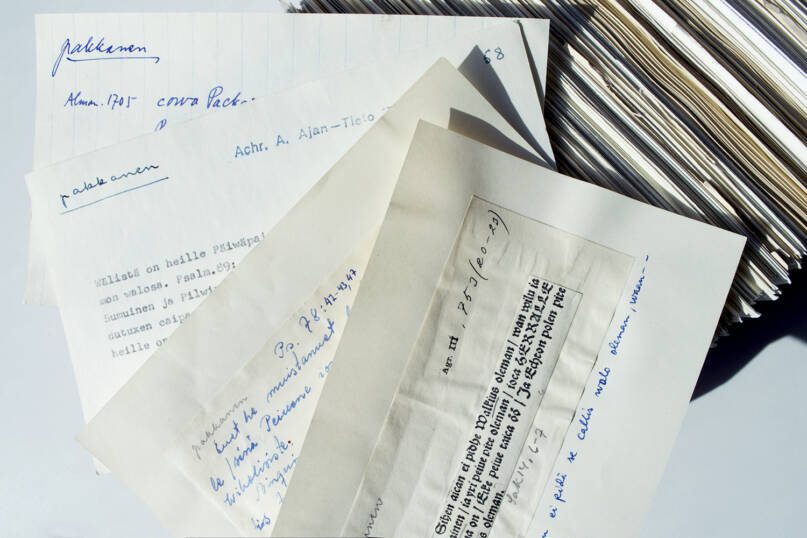 pakkanen
68
Alman. 1705 cowa Pack--
Achr. A. Ajan-Tieto
pakkanen
Wälistä on heille Päiwäpai
mon walosa. Psalm.89:
Sumuinen ja Pilwin
datuxen caipa
heille on
pakkanen
Ps. 78:42-43,47
he muistanuet
sinä Peiuene
Agr. III, 753 (20-23)
Sihen aican ei pidhe Walkius oleman / wan wilu ia
ninen / ia yxi peiue pite oleman / ioca HERRALLE
on / Eike peiue taica öö / Ja Ehtoon polen pite
s oleman.
Sak 14, 6-7
n ei pidä se callis walo oleman, waan--
nen